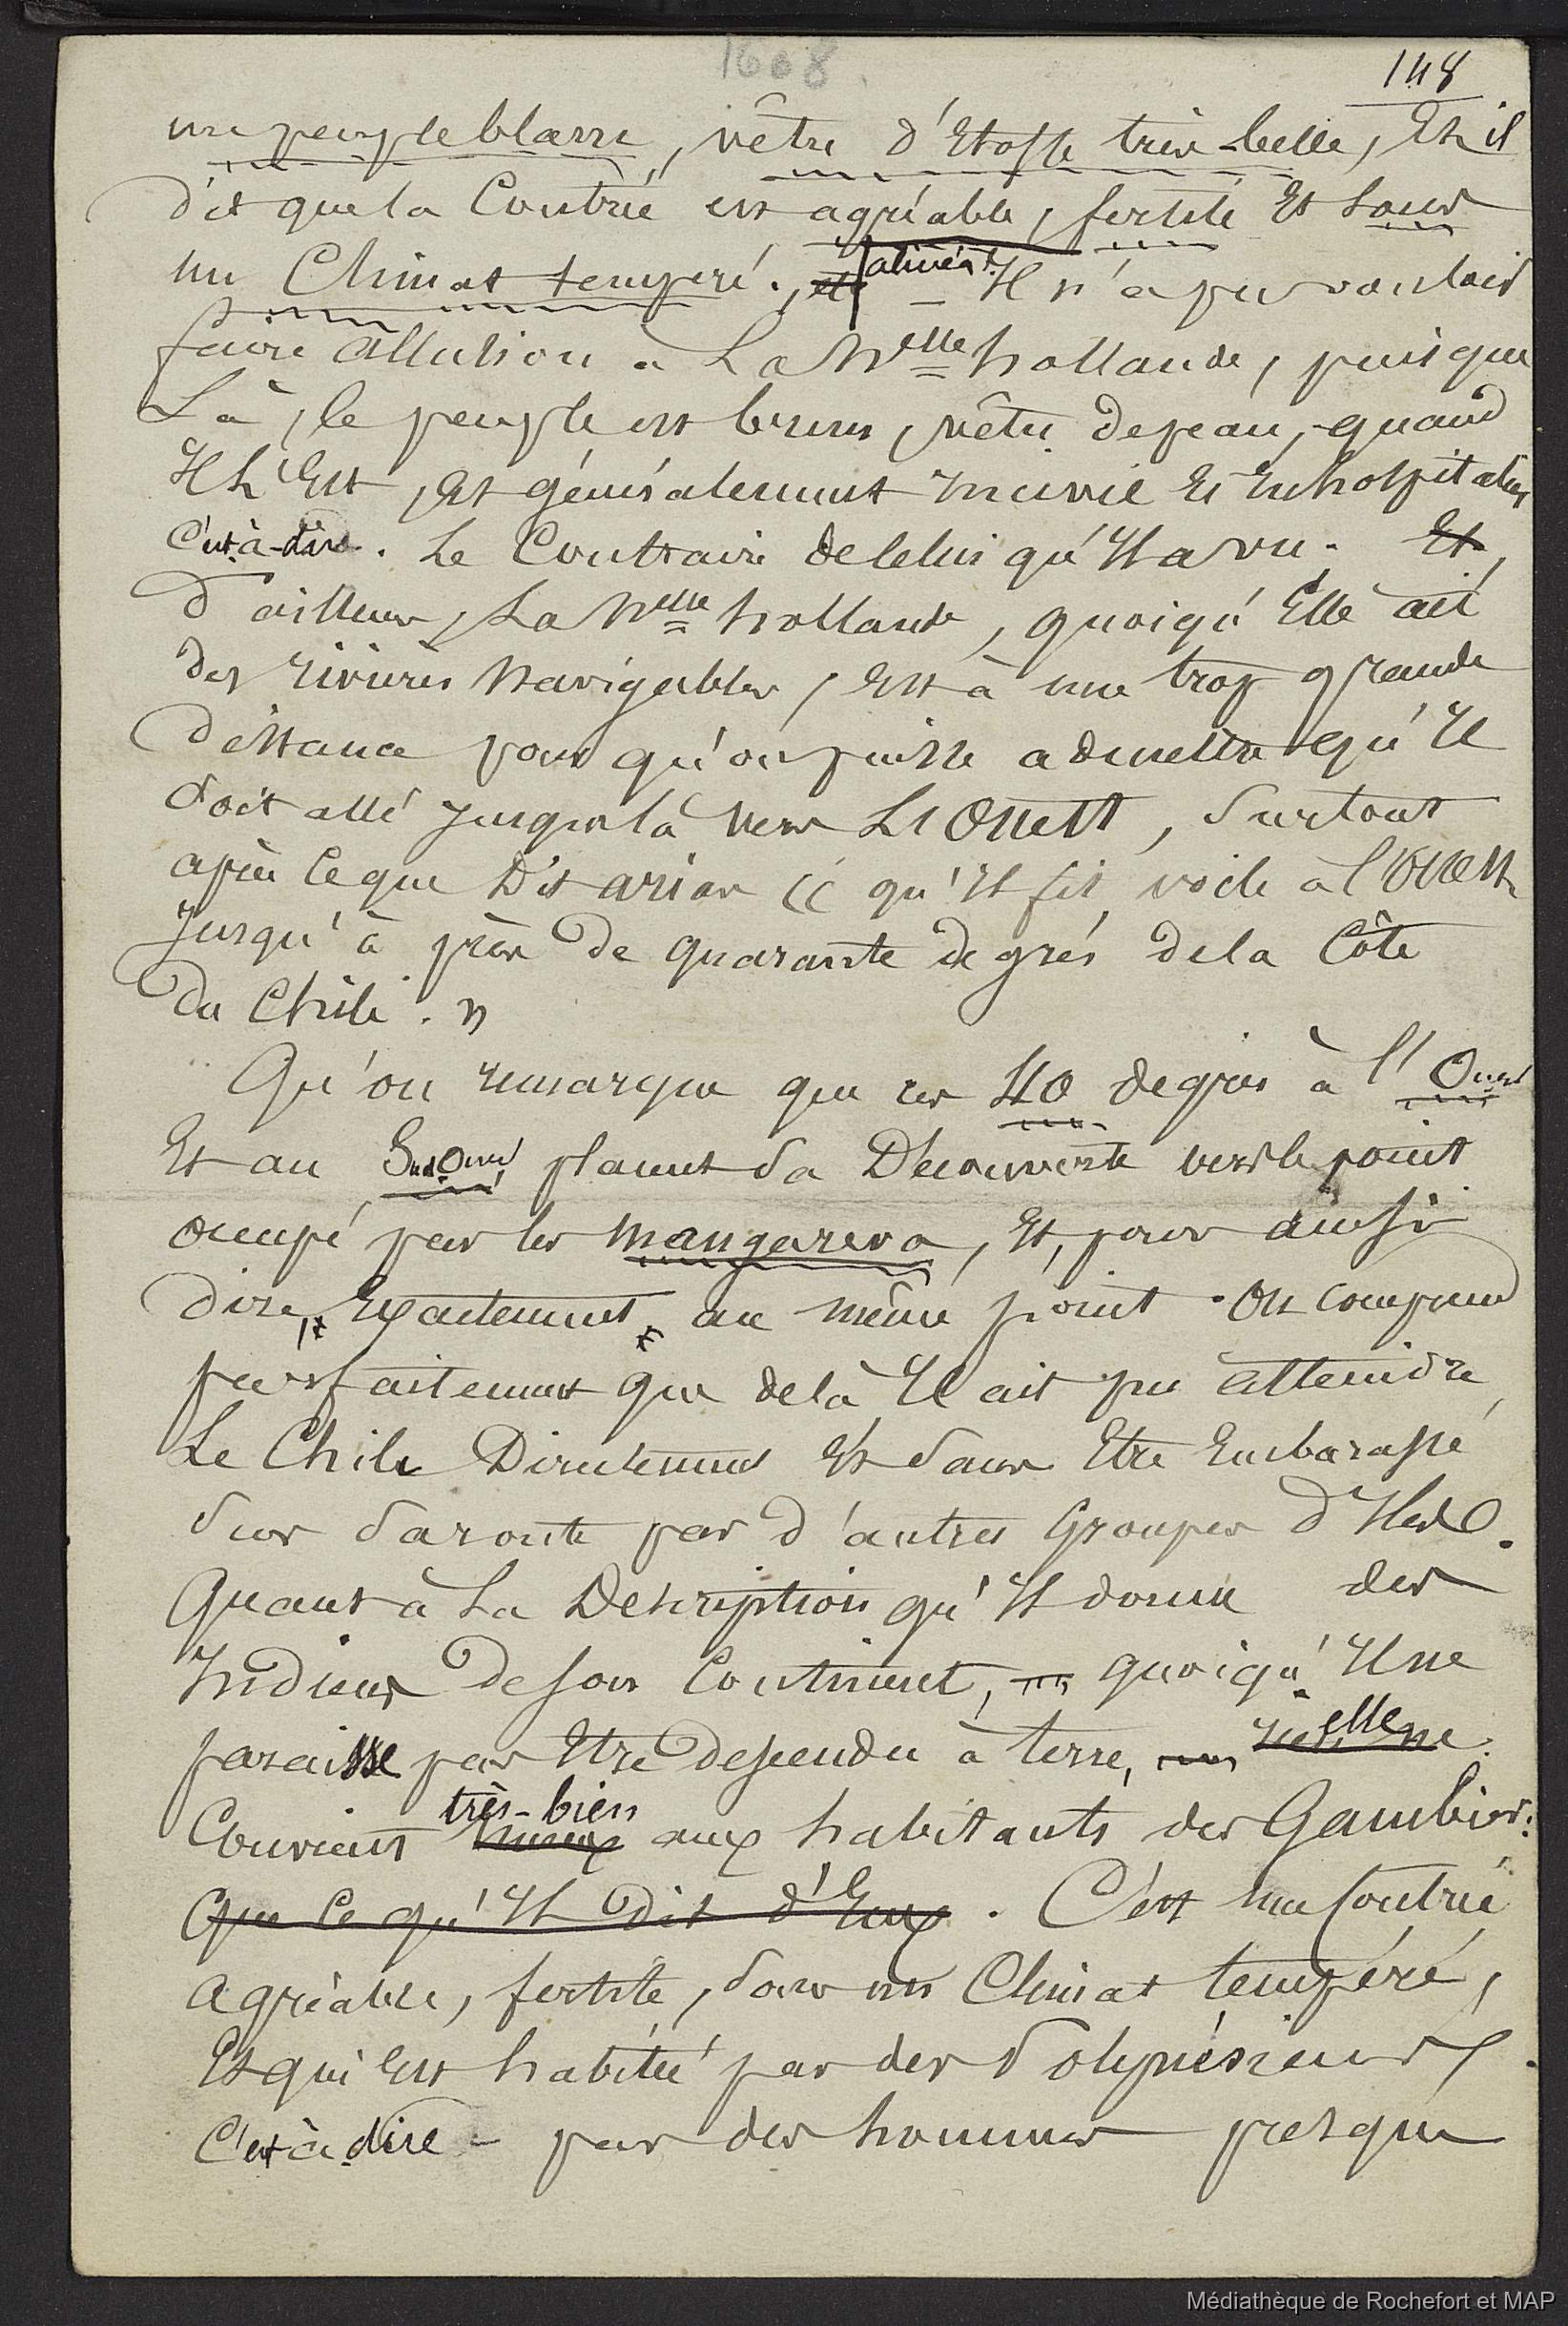 1608
148
un peuple blanc, vêtu d'Etoffe très-belle, Et il
dit que la Contrée est agréable, fertile Et sous
un Climat tempéré. et alinéa. - Il n'a pu vouloir
faire allusion à La Nelle hollande, puisque
Là, le peuple est brun, vêtu de peau, quand
Il L'Est, Et généralement Incivil Et Inhospitalier
C'est-à-dire. Le Contraire de celui qu'Il a vu. Et,
d'ailleurs, La Nelle hollande, quoiqu'Elle ait
des rivières Navigables, Est à une trop grande
distance pour qu'on puisse admettre qu'Il
soit allé Jusques là vers L'Ouest, Surtout
après ce que Dit arias « qu'Il fit voile à l'Ouest
Jusqu'à près de quarante degrés de la Côte
du Chili. »
Qu'on remarque que ces 40 degrés à l'Ouest
Et au Sud Ouest placent sa Découverte vers le point
occupé par les Mangareva, Et, pour ainsi
dire, Exactement au même point. On comprend
parfaitement que delà Il ait pu atteindre
Le Chili Directement Et sans Etre Embarassé
sur sa route par d'autres Groupes d'Iles.
Quant à La Description qu'Il donne des
Indiens de son Continent, quoiqu'Il ne
paraisse pas Etre descendu à terre, elle ne
Convient très-bien mieux aux habitants des Gambier:
que ce qu'Il dit d'Eux. C'est une Contrée
agréable, fertile, sous un Climat tempéré,
Et qui Est habitée par des Polynésiens,
C'est à dire - par des hommes presque
Médiathèque de Rochefort et MAP